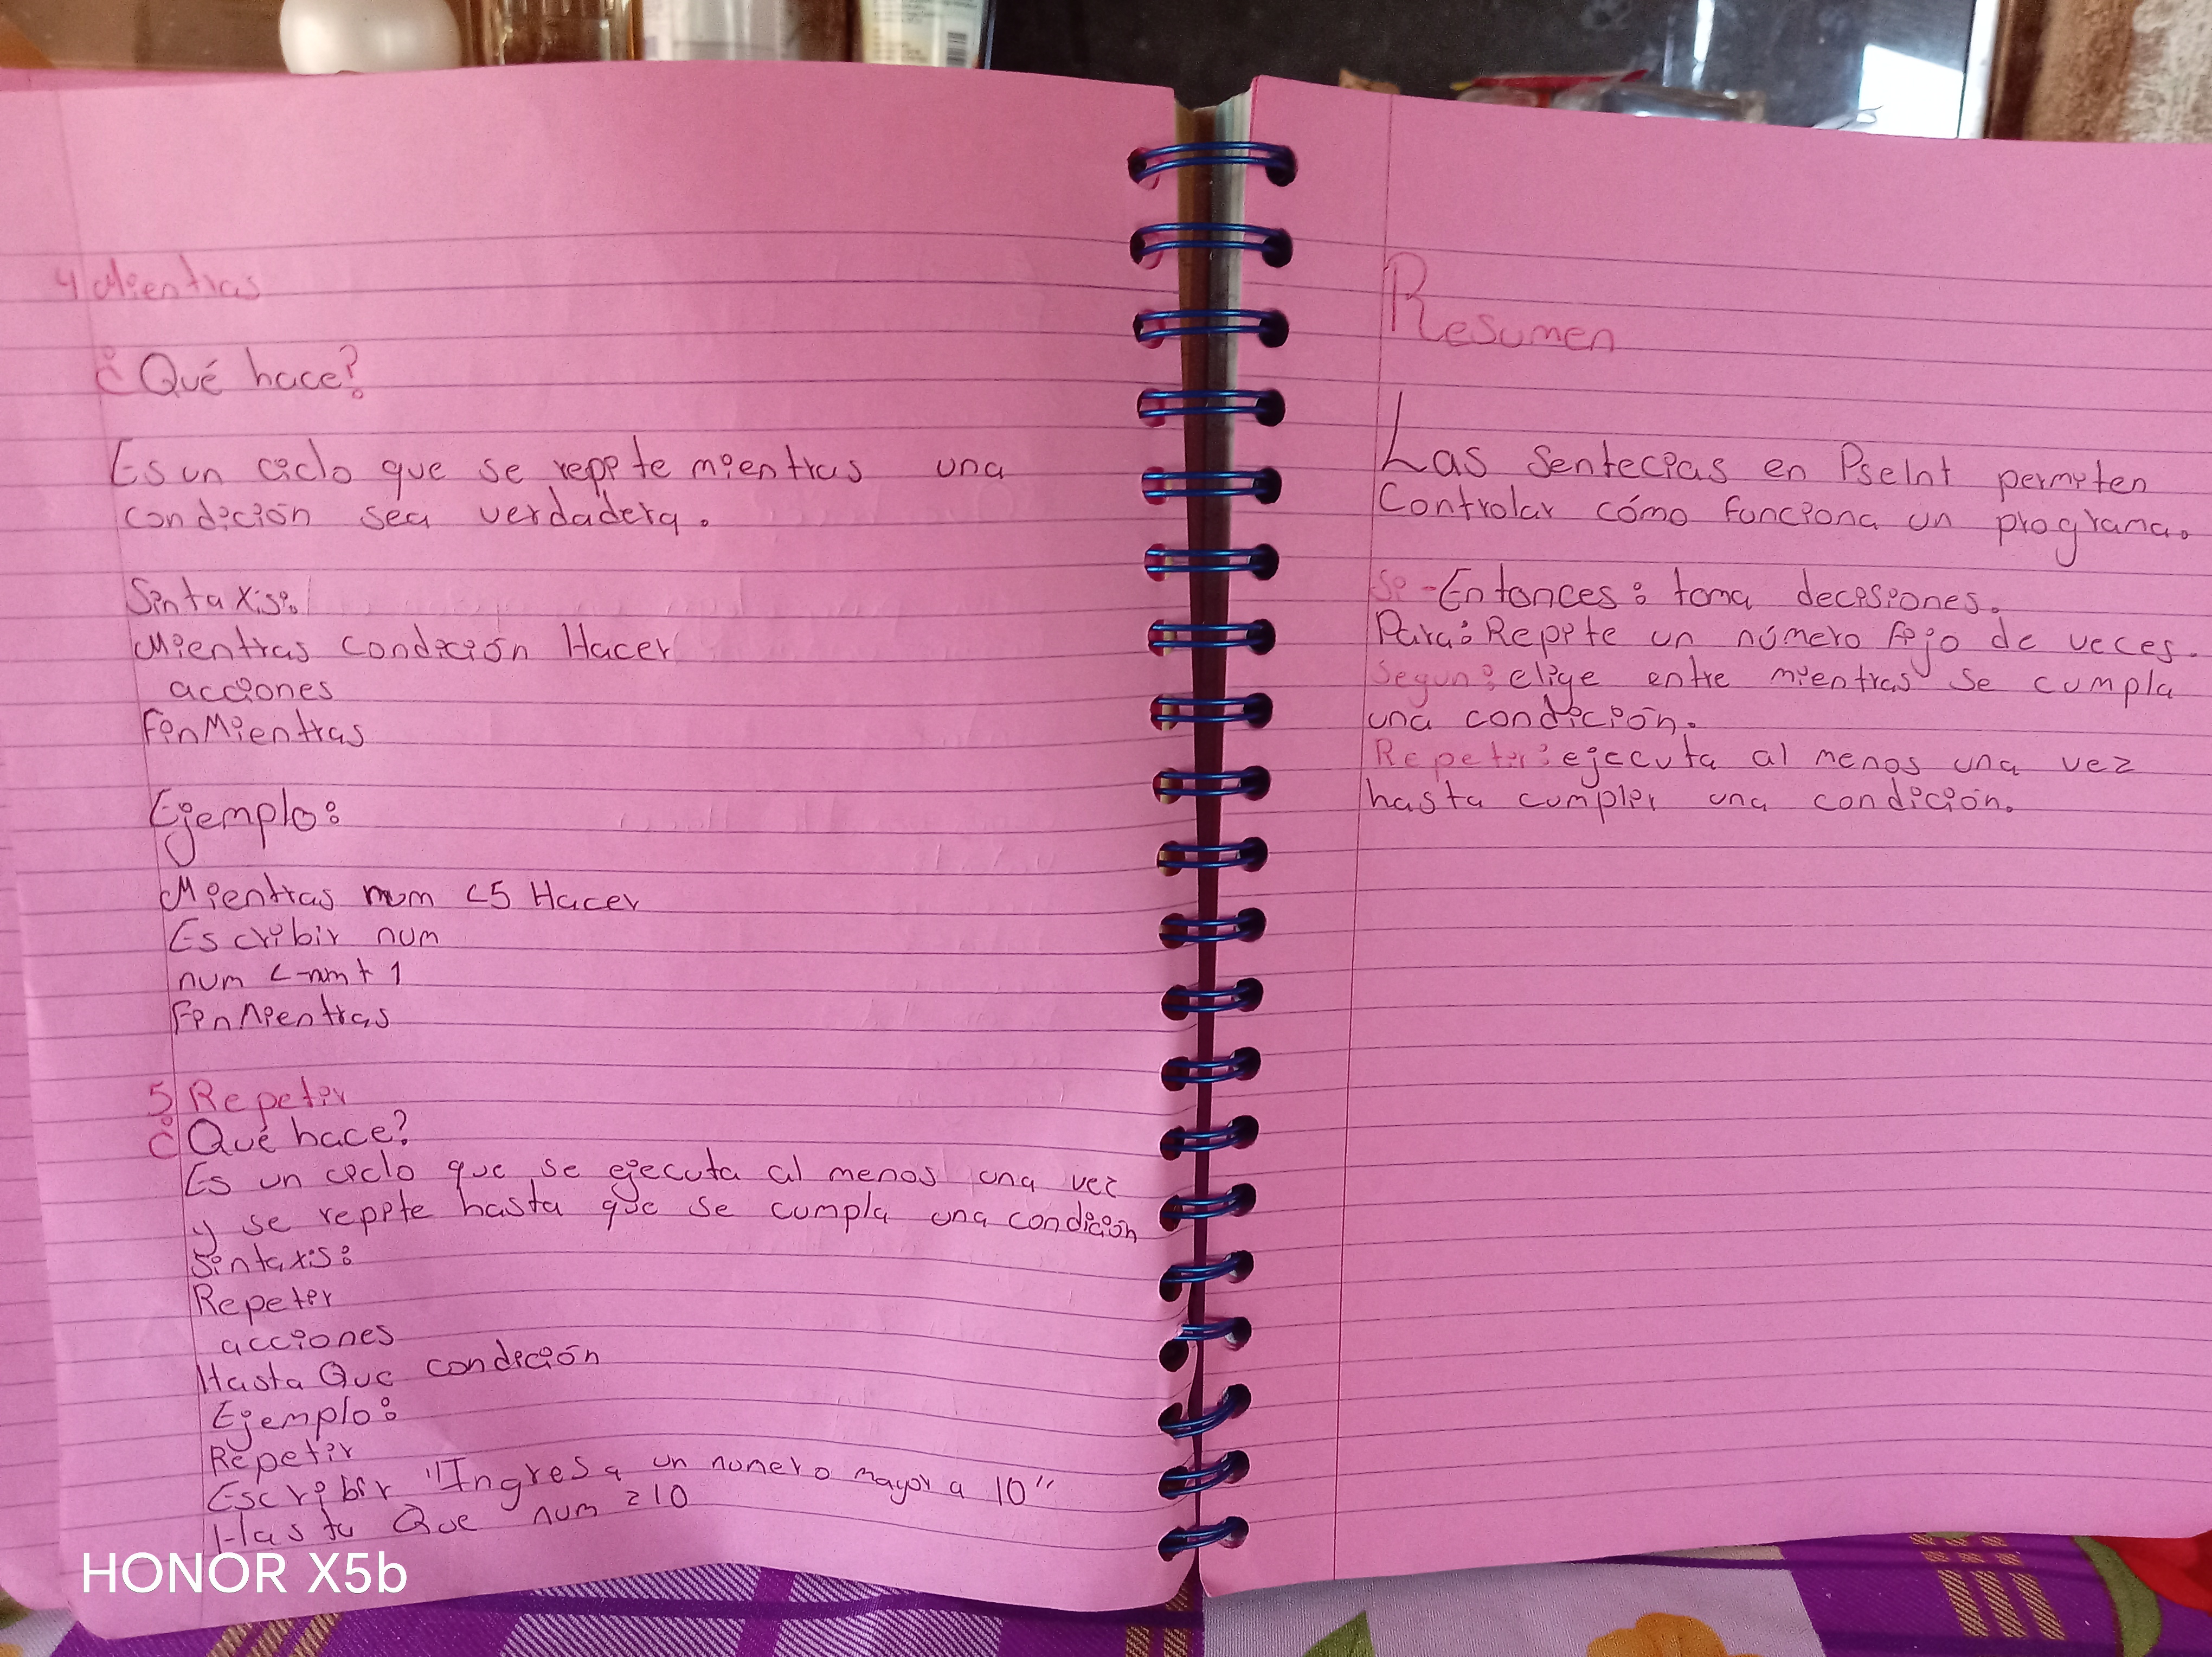 4 Mientras
¿Qué hace?
Es un ciclo que se repite mientras una
condición sea verdadera.
Sintaxis:
Mientras condición Hacer
acciones
FinMientras
Ejemplo:
Mientras num <5 Hacer
Escribir num
num <-nm+1
FinMientras
5 Repetir
¿Qué hace?
Es un ciclo que se ejecuta al menos una vez
y se repite hasta que se cumpla una condición
Sintaxis:
Repetir
acciones
Hasta Que condición
Ejemplo:
Repetir
Escribir "Ingresa un numero mayor a 10"
Hasta Que num 10
HONOR X5b
Resumen
Las sentecias en PseInt permiten
Controlar cómo funciona un programa.
Si-Entonces: toma decisiones.
Para: Repite un número fijo de veces.
Segun: elige entre mientras se cumpla
una condición.
Repetir: ejecuta al menos una vez
hasta cumplir una condición.